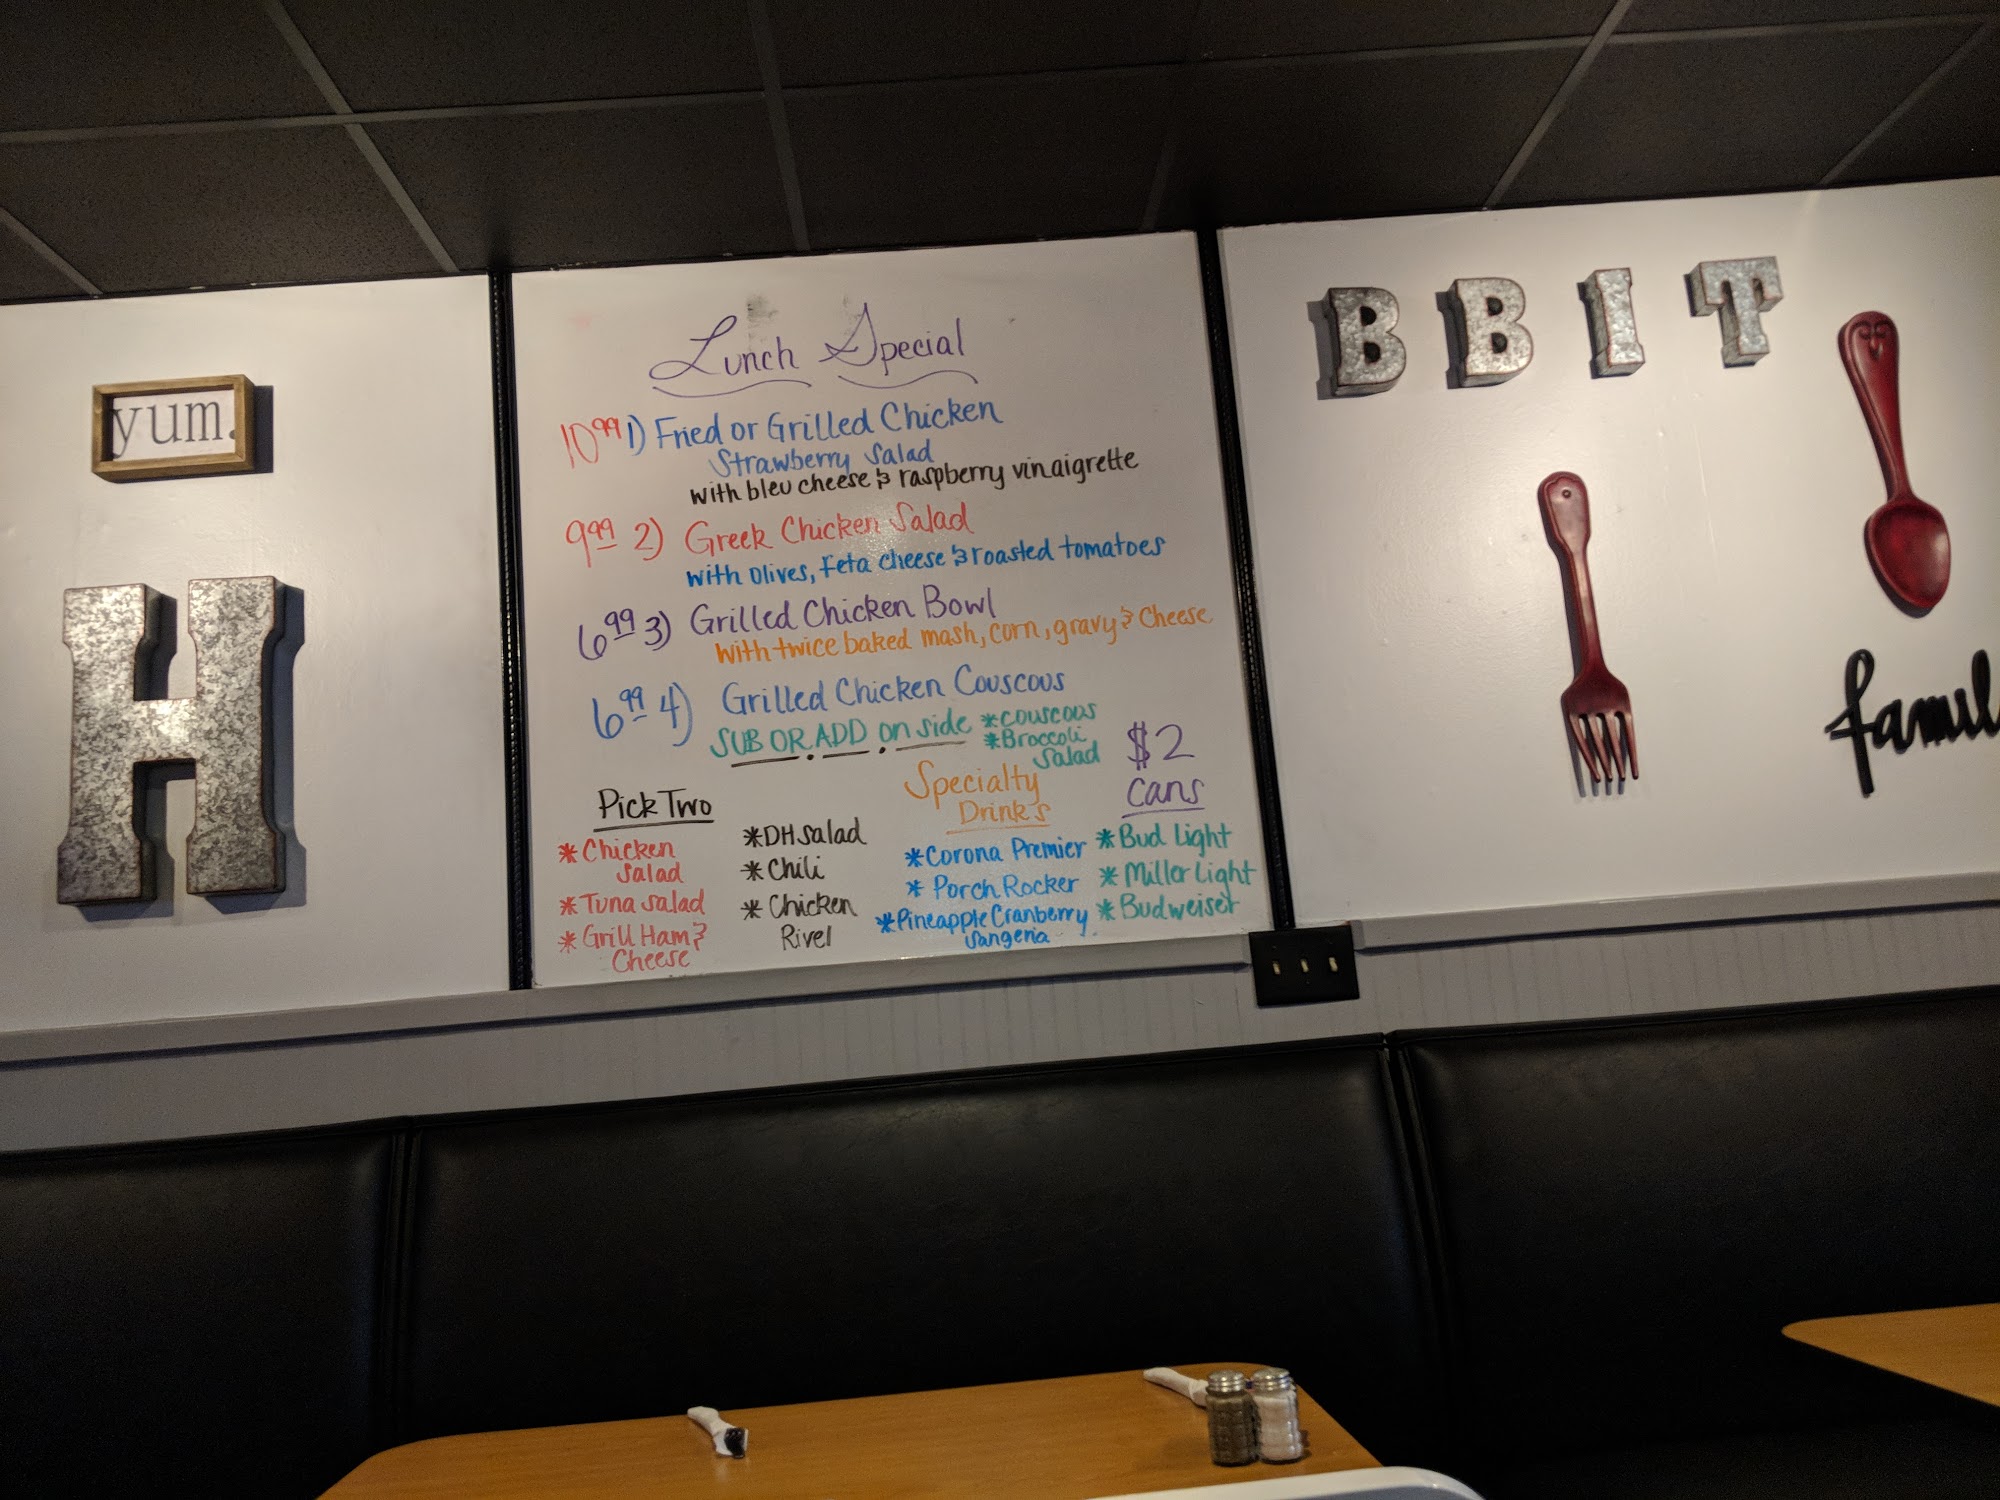 yum.
H
Lunch Special
10.99 1) Fried or Grilled Chicken
Strawberry Salad
with bleu cheese & raspberry vinaigrette
9.99 2) Greek Chicken Salad
with olives, feta cheese & roasted tomatoes
6.99 3) Grilled Chicken Bowl
with twice baked mash, corn, gravy & cheese
6.99 4) Grilled Chicken Couscous
SUB OR ADD on side
*couscous
*Broccoli
Salad
Pick Two
*Chicken
Salad
*Tuna Salad
*Grill Ham &
Cheese
*DH Salad
*Chili
*Chicken
Rivel
Specialty
Drinks
*Corona Premier
*Porch Rocker
*Pineapple Cranberry
Sangeria
$2
Cans
*Bud Light
*Miller Light
*Budweiser
BBIT
famil